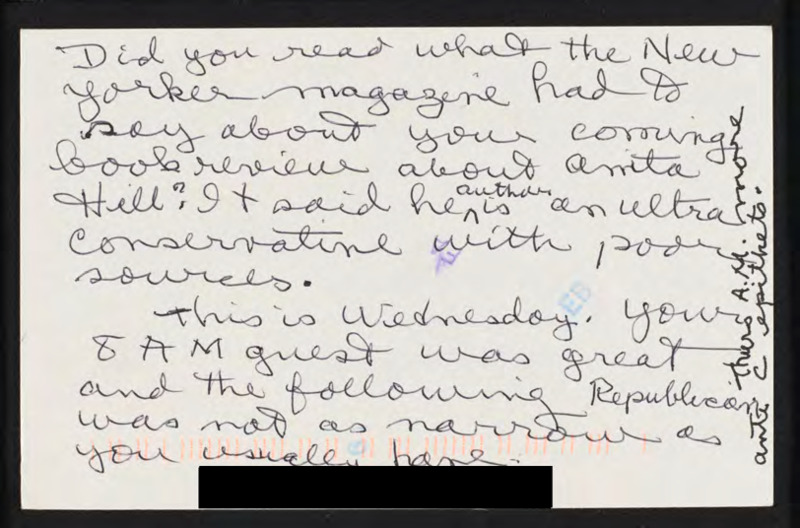 Did you read what the New
Yorker magazine had to
say about your coming
book review about Anita
Hill? It said he, author is an ultra
conservative with poor
sources.
This is Wednesday. Your
8 AM guest was great
and the following Republican
was not as narrow as
you usually have.
Thurs A.M. more
anti C epithets.
EB